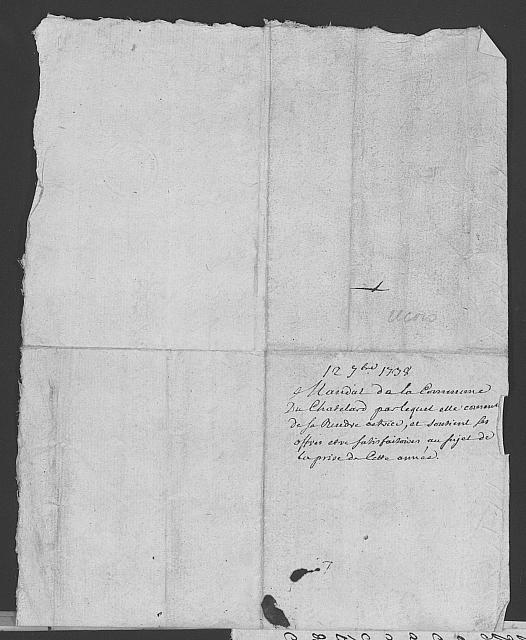 12 7bre 1738
Mandat de la Commune
Du Chatelard par lequel elle
de se Rendre et soutient ses
offres etre satisfaitoires au sujet de
la prise de Cette année.